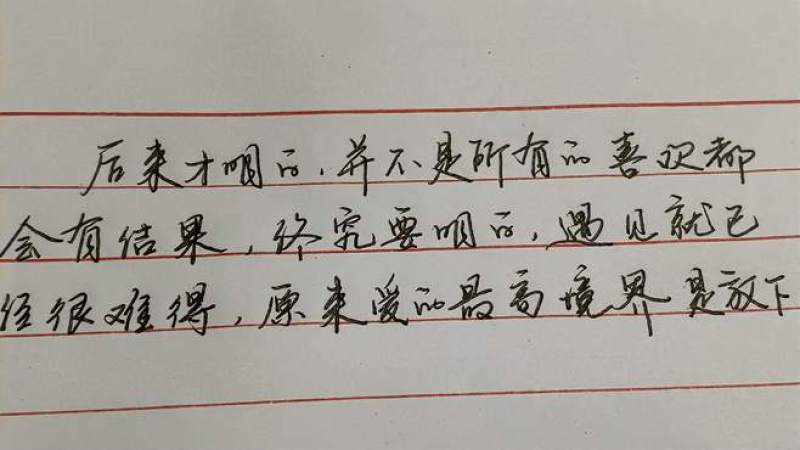 后来才明白,并不是所有的喜欢都
会有结果,终究要明白,遇见就已
经很难得,原来爱的最高境界是放下